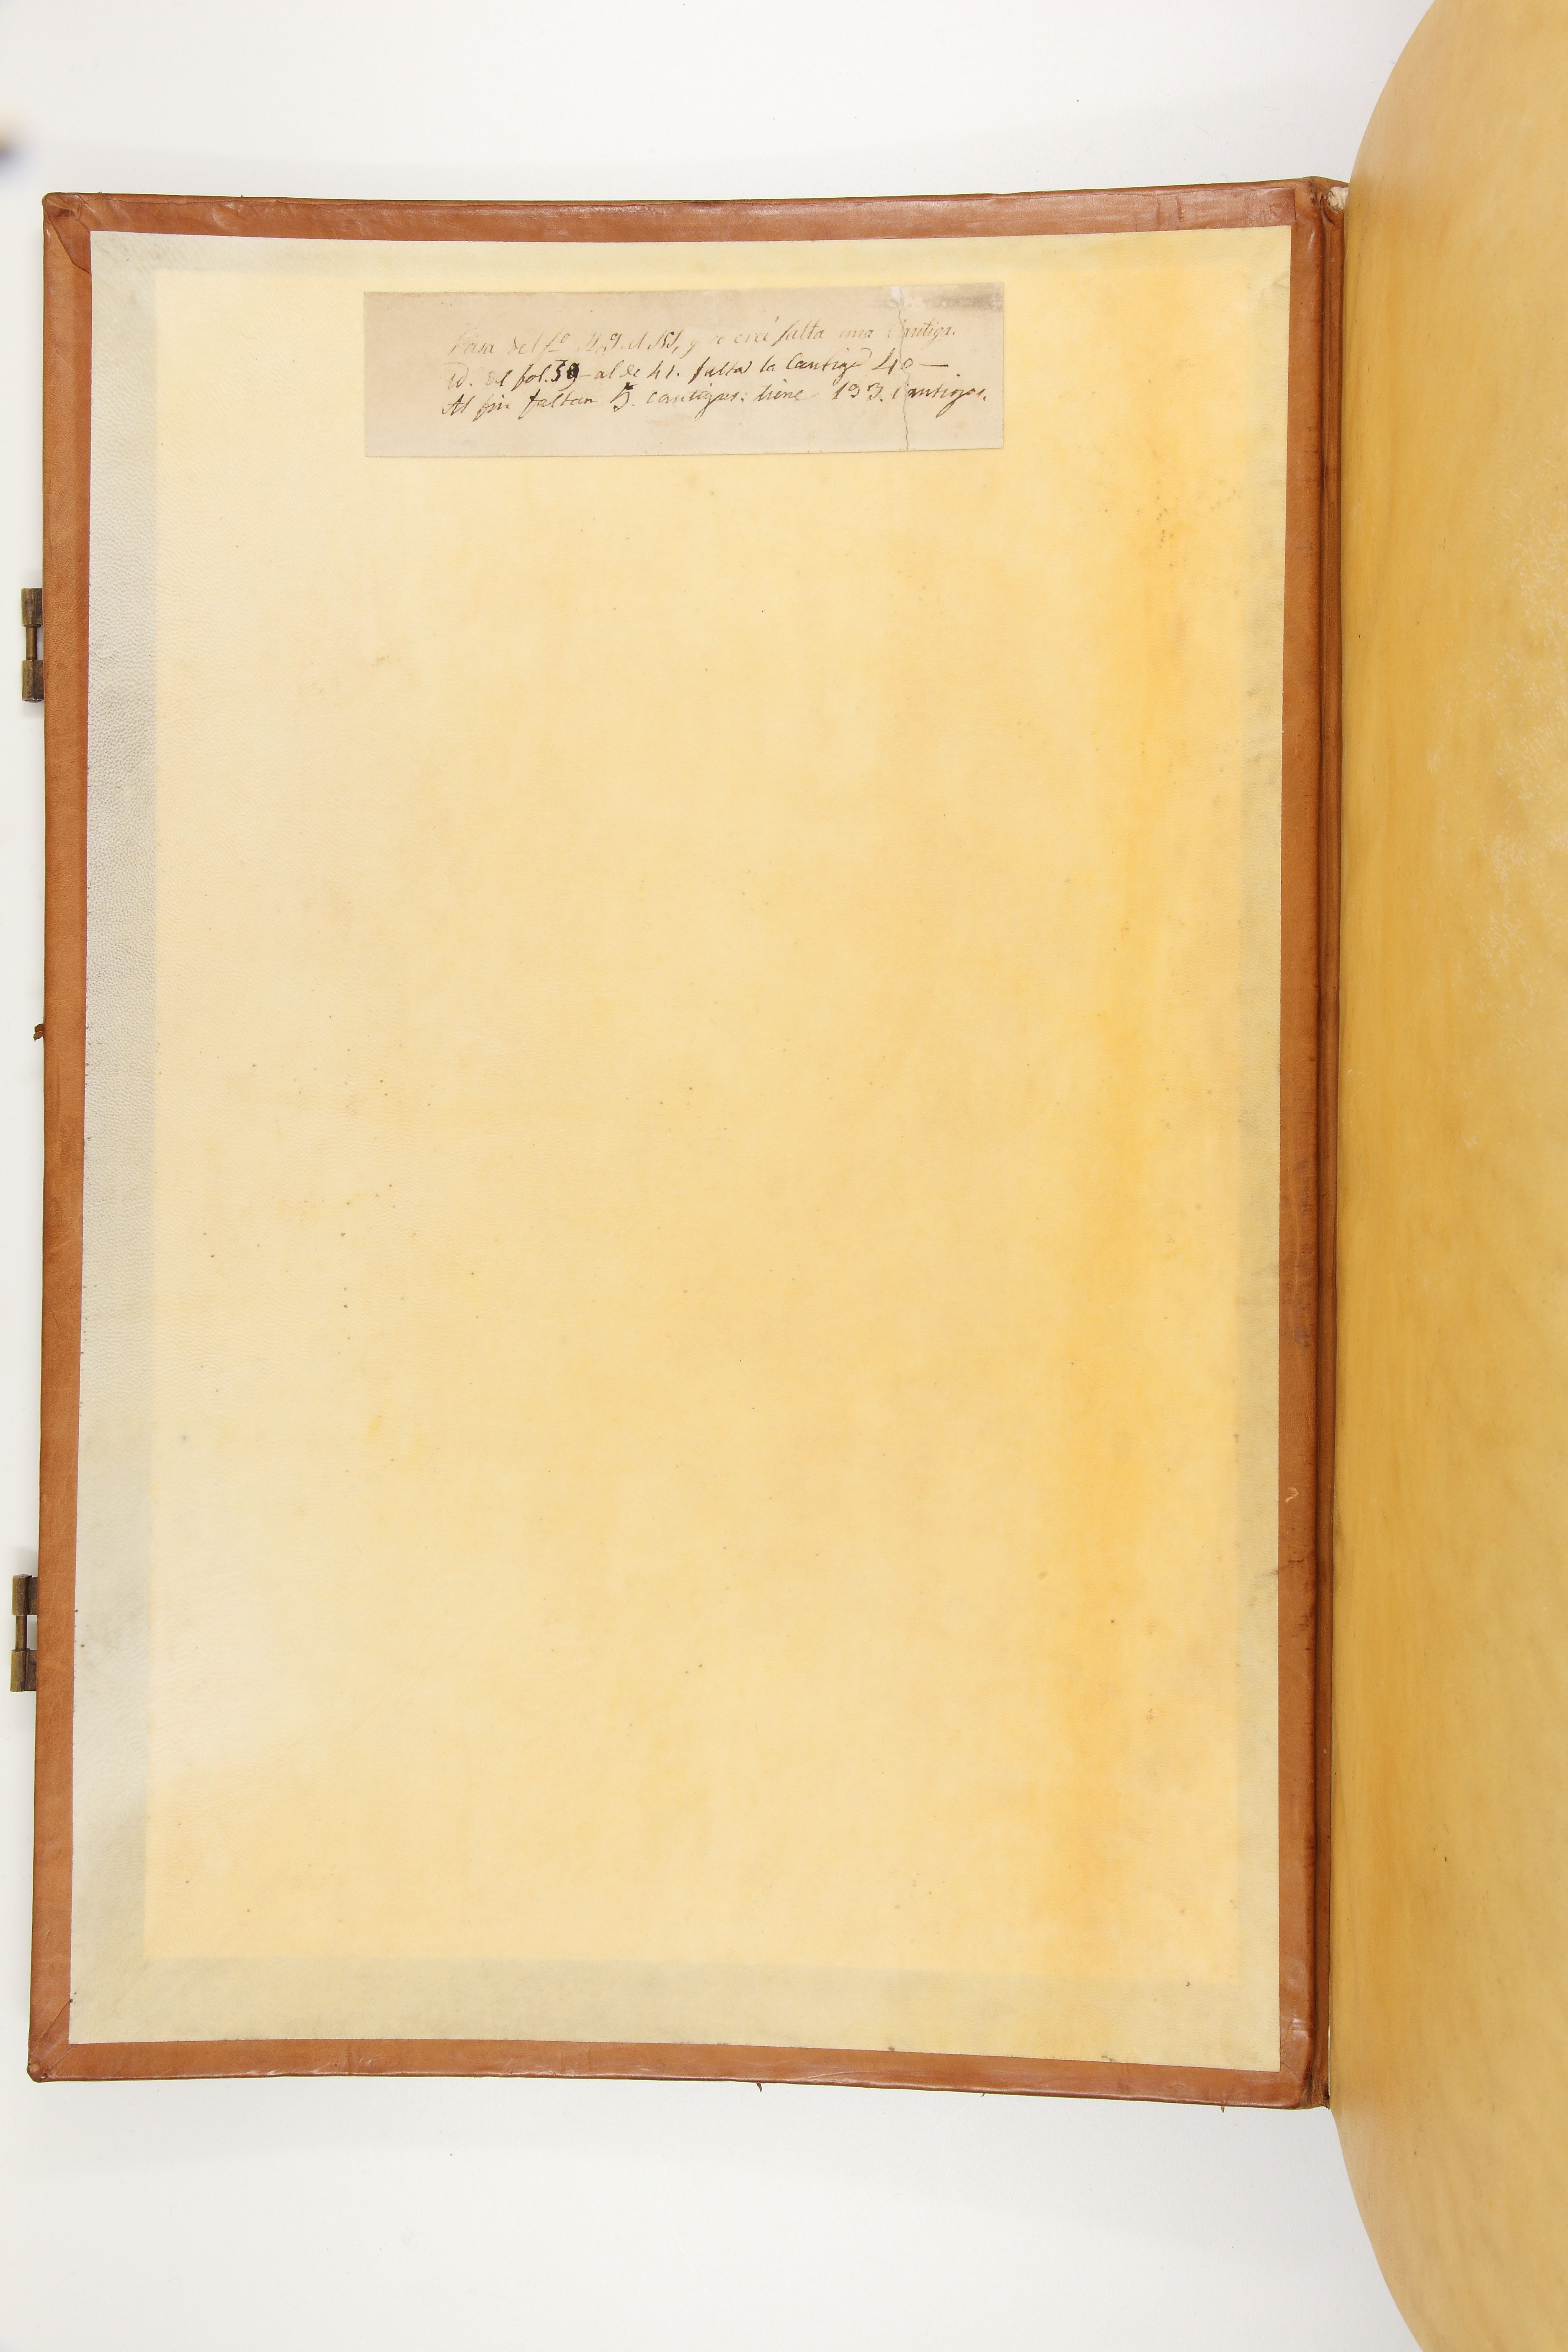 Pasa del fº al 151, y se creé falta una Cantiga.
Id. del fol. 39 al de 41. falta la Cantiga 40 —
Al fin faltan 5. cantigas: tiene 193. Cantigas.